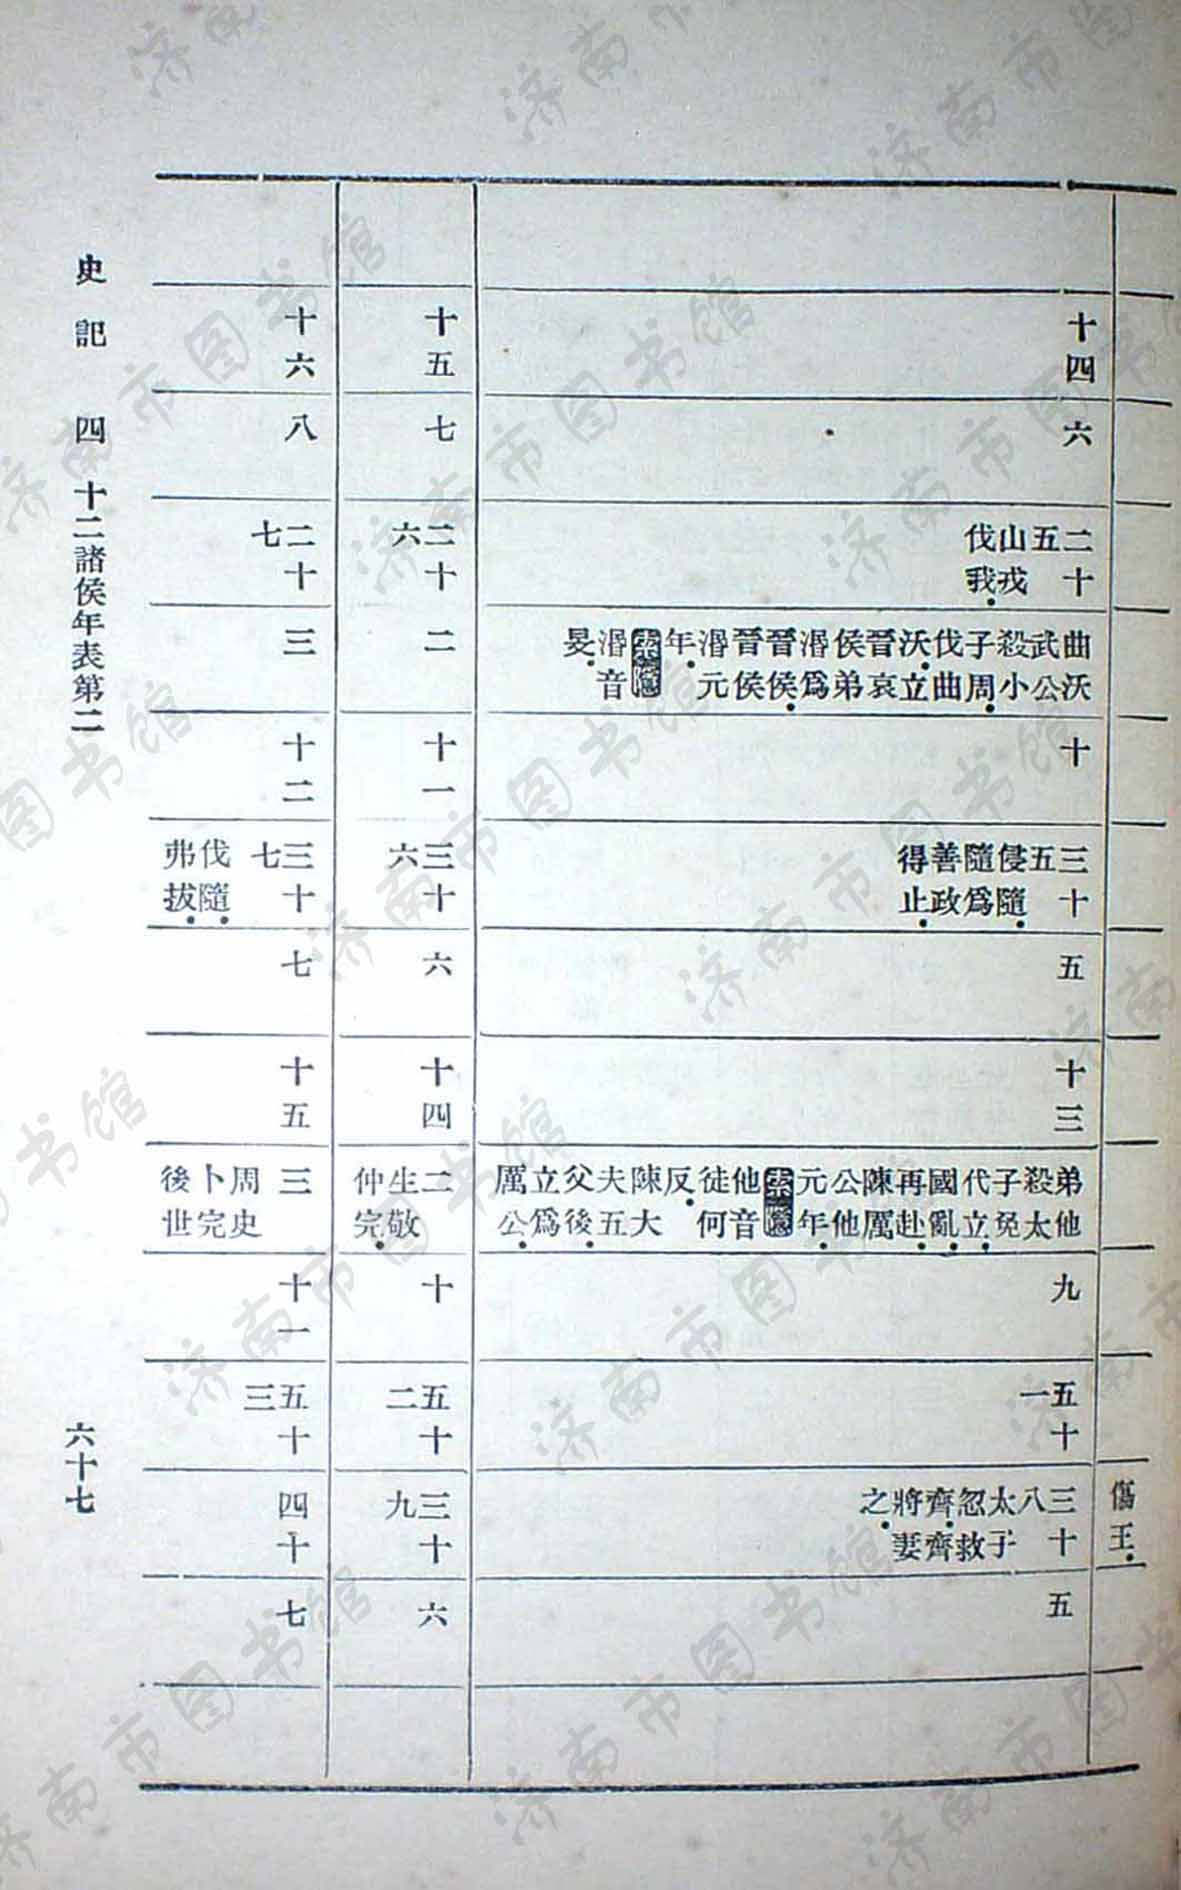 傷王
十四
六
二十五山戎伐我
曲沃武公殺小子周伐曲沃立晉哀侯弟湣爲晉侯晉侯湣元年索隱湣音旻
十
三十五侵隨隨爲善政得止
五
十三
弟他殺太子免代立國亂再赴陳厲公他元年索隱他音徒何反陳大夫五父後立爲厲公
九
五十一
三十八太子忽救齊齊將妻之
五
十五
七
二十六
二
十一
三十六
六
十四
二生敬仲完
十
五十二
三十九
六
十六
八
二十七
三
十二
三十七伐隨弗拔
七
十五
三周史卜完後世
十一
五十三
四十
七
史記 四 十二諸侯年表第二
六十七
济南市图书馆